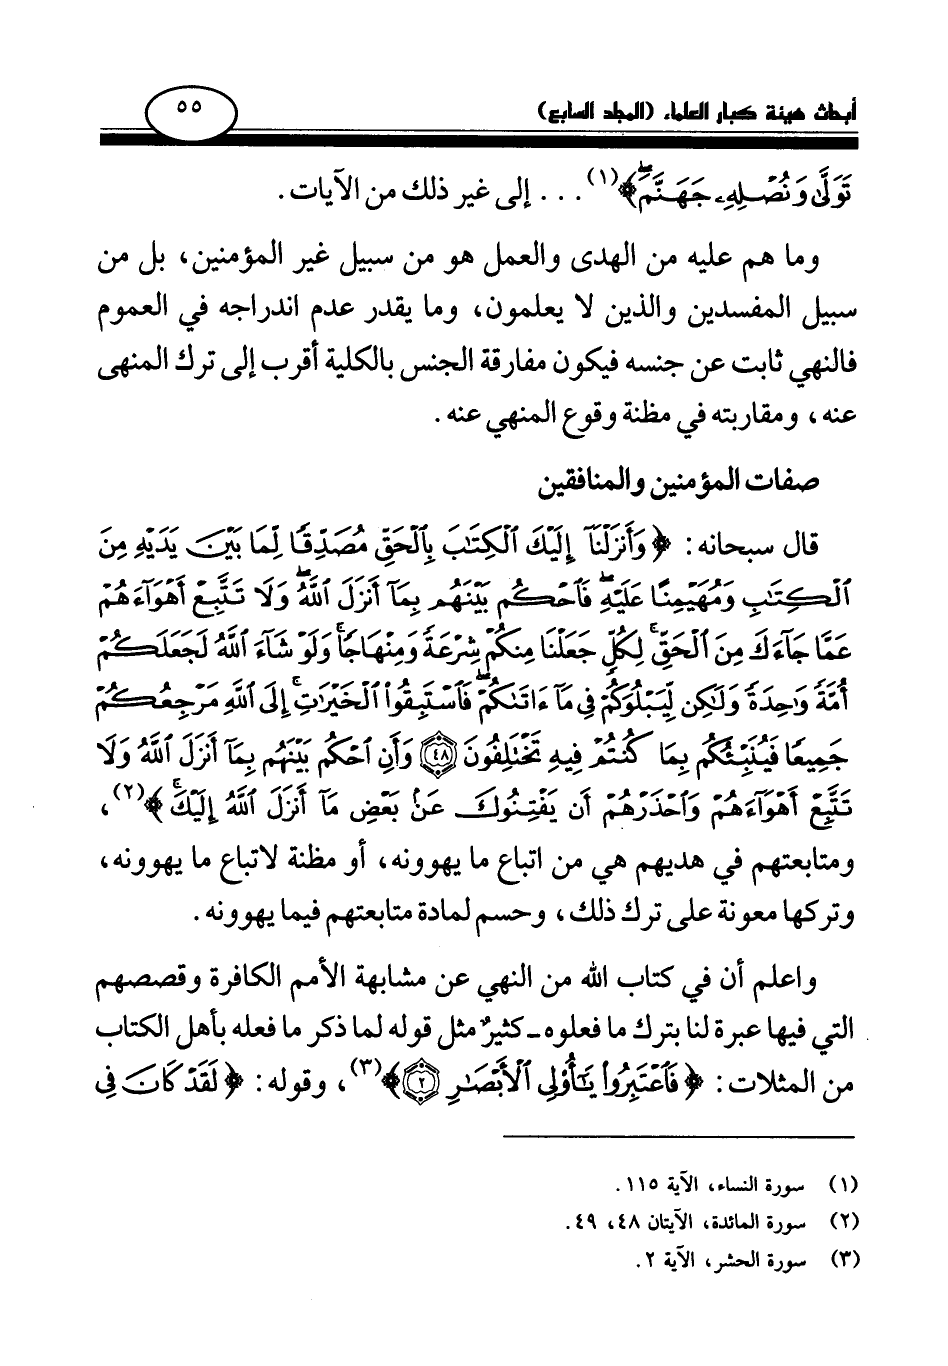 أبحاث هيئة كبار العلماء (المجلد السابع)
٥٥
تَوَلَّىٰ وَنُصْلِهِۦ جَهَنَّمَ ۖ﴾(١) . . . إلى غير ذلك من الآيات .
وما هم عليه من الهدى والعمل هو من سبيل غير المؤمنين، بل من
سبيل المفسدين والذين لا يعلمون، وما يقدر عدم اندراجه في العموم
فالنهي ثابت عن جنسه فيكون مفارقة الجنس بالكلية أقرب إلى ترك المنهى
عنه، ومقاربته في مظنة وقوع المنهي عنه .
صفات المؤمنين والمنافقين
قال سبحانه: ﴿ وَأَنزَلْنَآ إِلَيْكَ ٱلْكِتَٰبَ بِٱلْحَقِّ مُصَدِّقًا لِّمَا بَيْنَ يَدَيْهِ مِنَ
ٱلْكِتَٰبِ وَمُهَيْمِنًا عَلَيْهِ ۖ فَٱحْكُم بَيْنَهُم بِمَآ أَنزَلَ ٱللَّهُ ۖ وَلَا تَتَّبِعْ أَهْوَآءَهُمْ
عَمَّا جَآءَكَ مِنَ ٱلْحَقِّ ۚ لِكُلٍّ جَعَلْنَا مِنكُمْ شِرْعَةً وَمِنْهَاجًا ۚ وَلَوْ شَآءَ ٱللَّهُ لَجَعَلَكُمْ
أُمَّةً وَٰحِدَةً وَلَٰكِن لِّيَبْلُوَكُمْ فِى مَآ ءَاتَىٰكُمْ ۖ فَٱسْتَبِقُوا۟ ٱلْخَيْرَٰتِ ۚ إِلَى ٱللَّهِ مَرْجِعُكُمْ
جَمِيعًا فَيُنَبِّئُكُم بِمَا كُنتُمْ فِيهِ تَخْتَلِفُونَ ﴿٤٨﴾ وَأَنِ ٱحْكُم بَيْنَهُم بِمَآ أَنزَلَ ٱللَّهُ وَلَا
تَتَّبِعْ أَهْوَآءَهُمْ وَٱحْذَرْهُمْ أَن يَفْتِنُوكَ عَنۢ بَعْضِ مَآ أَنزَلَ ٱللَّهُ إِلَيْكَ ۖ ﴾(٢) ،
ومتابعتهم في هديهم هي من اتباع ما يهوونه، أو مظنة لاتباع ما يهوونه،
وتركها معونة على ترك ذلك، وحسم لمادة متابعتهم فيما يهوونه .
واعلم أن في كتاب الله من النهي عن مشابهة الأمم الكافرة وقصصهم
التي فيها عبرة لنا بترك ما فعلوه ـ كثيرٌ مثل قوله لما ذكر ما فعله بأهل الكتاب
من المثلات: ﴿ فَٱعْتَبِرُوا۟ يَٰٓأُو۟لِى ٱلْأَبْصَٰرِ ﴿٢﴾ ﴾(٣)، وقوله: ﴿ لَقَدْ كَانَ فِى
(١) سورة النساء، الآية ١١٥ .
(٢) سورة المائدة، الآيتان ٤٨، ٤٩ .
(٣) سورة الحشر، الآية ٢ .